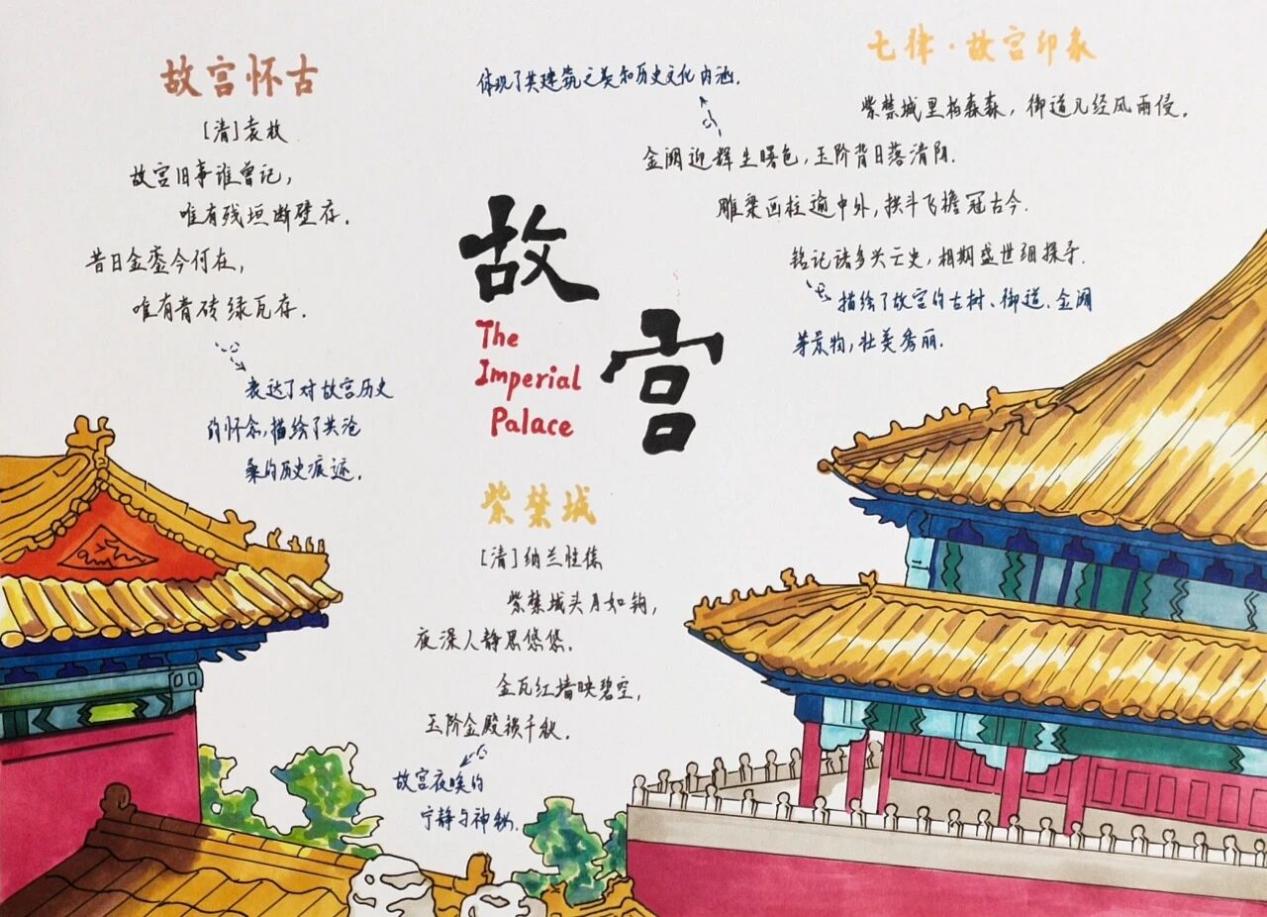 故宫怀古
[清]袁枚
故宫旧事谁曾记，
唯有残垣断壁存.
昔日金銮今何在，
唯有青砖绿瓦存.
表达了对故宫历史
的怀念,描绘了其沧
桑的历史痕迹.
体现了其建筑之美和历史文化内涵.
七律·故宫印象
紫禁城里柏森森，御道几经风雨侵.
金阙迎辉生曙色,玉阶背日落清阴.
雕梁画柱逾中外,拱斗飞檐冠古今.
铭记诸多兴亡史,相期盛世细探寻.
描绘了故宫的古树、御道、金阙
等景物,壮美秀丽.
故宫
The
Imperial
Palace
紫禁城
[清]纳兰性德
紫禁城头月如钩,
夜深人静思悠悠.
金瓦红墙映碧空,
玉阶金殿锁千秋.
故宫夜晚的
宁静与神秘.